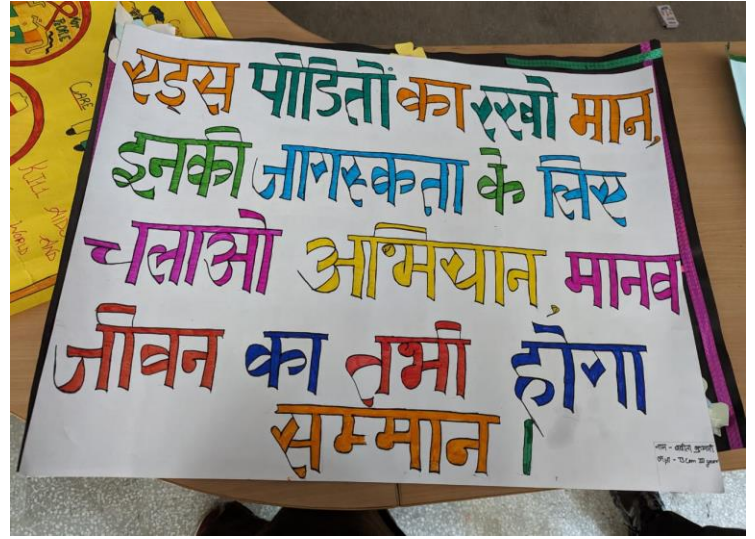 एड्स पीडितों का रखो मान,
इनकी जागरुकता के लिए
चलाओ अभियान, मानव
जीवन का तभी होगा
सम्मान।
नाम - कुमारी
B.Com III year
CARE
KILL AIDS
AND
WORLD